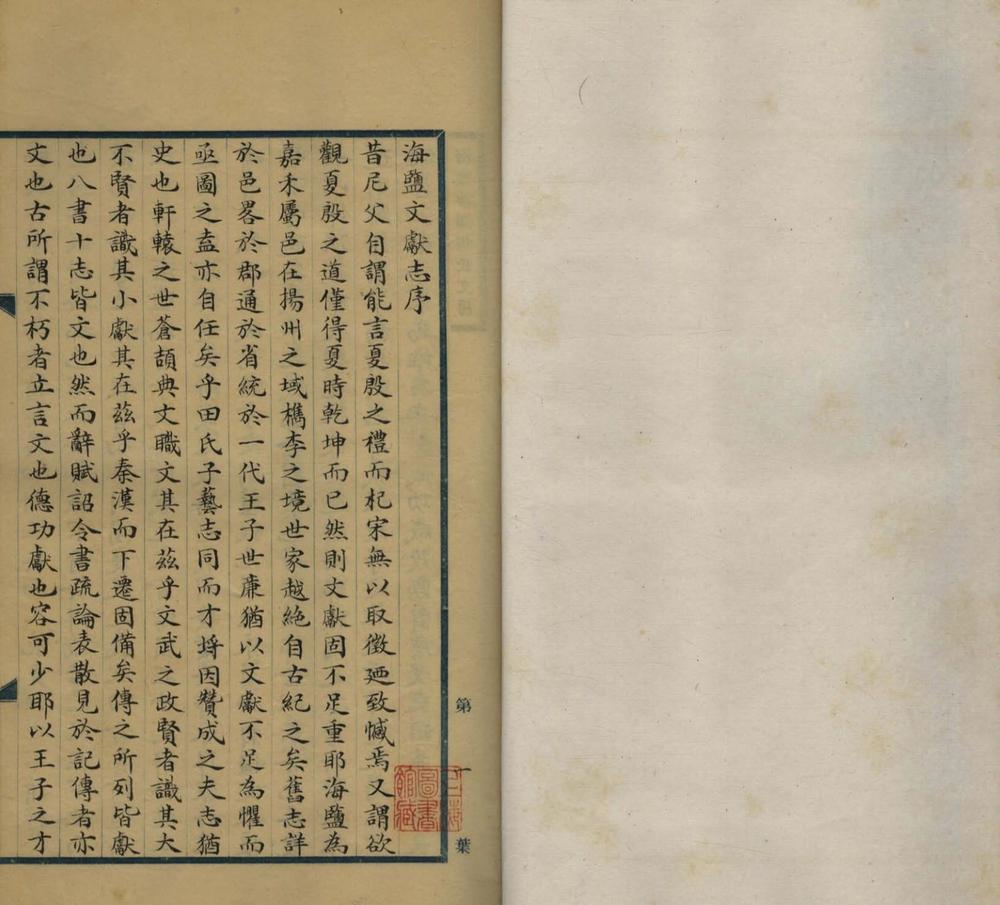 海鹽文獻志序
昔尼父自謂能言夏殷之禮而杞宋無以取徵廼致慽焉又謂欲
觀夏殷之道僅得夏時乾坤而已然則文獻固不足重耶海鹽為
嘉禾屬邑在揚州之域檇李之境世家越絶自古紀之矣舊志詳
於邑畧於郡通於省統於一代王子世亷猶以文獻不足為懼而
亟圖之盍亦自任矣乎田氏子藝志同而才埒因贊成之夫志猶
史也軒轅之世蒼頡典文職文其在茲乎文武之政賢者識其大
不賢者識其小獻其在茲乎秦漢而下遷固備矣傳之所列皆獻
也八書十志皆文也然而辭賦詔令書疏論表散見於記傳者亦
文也古所謂不朽者立言文也德功獻也容可少耶以王子之才
第一葉
圖書
館藏